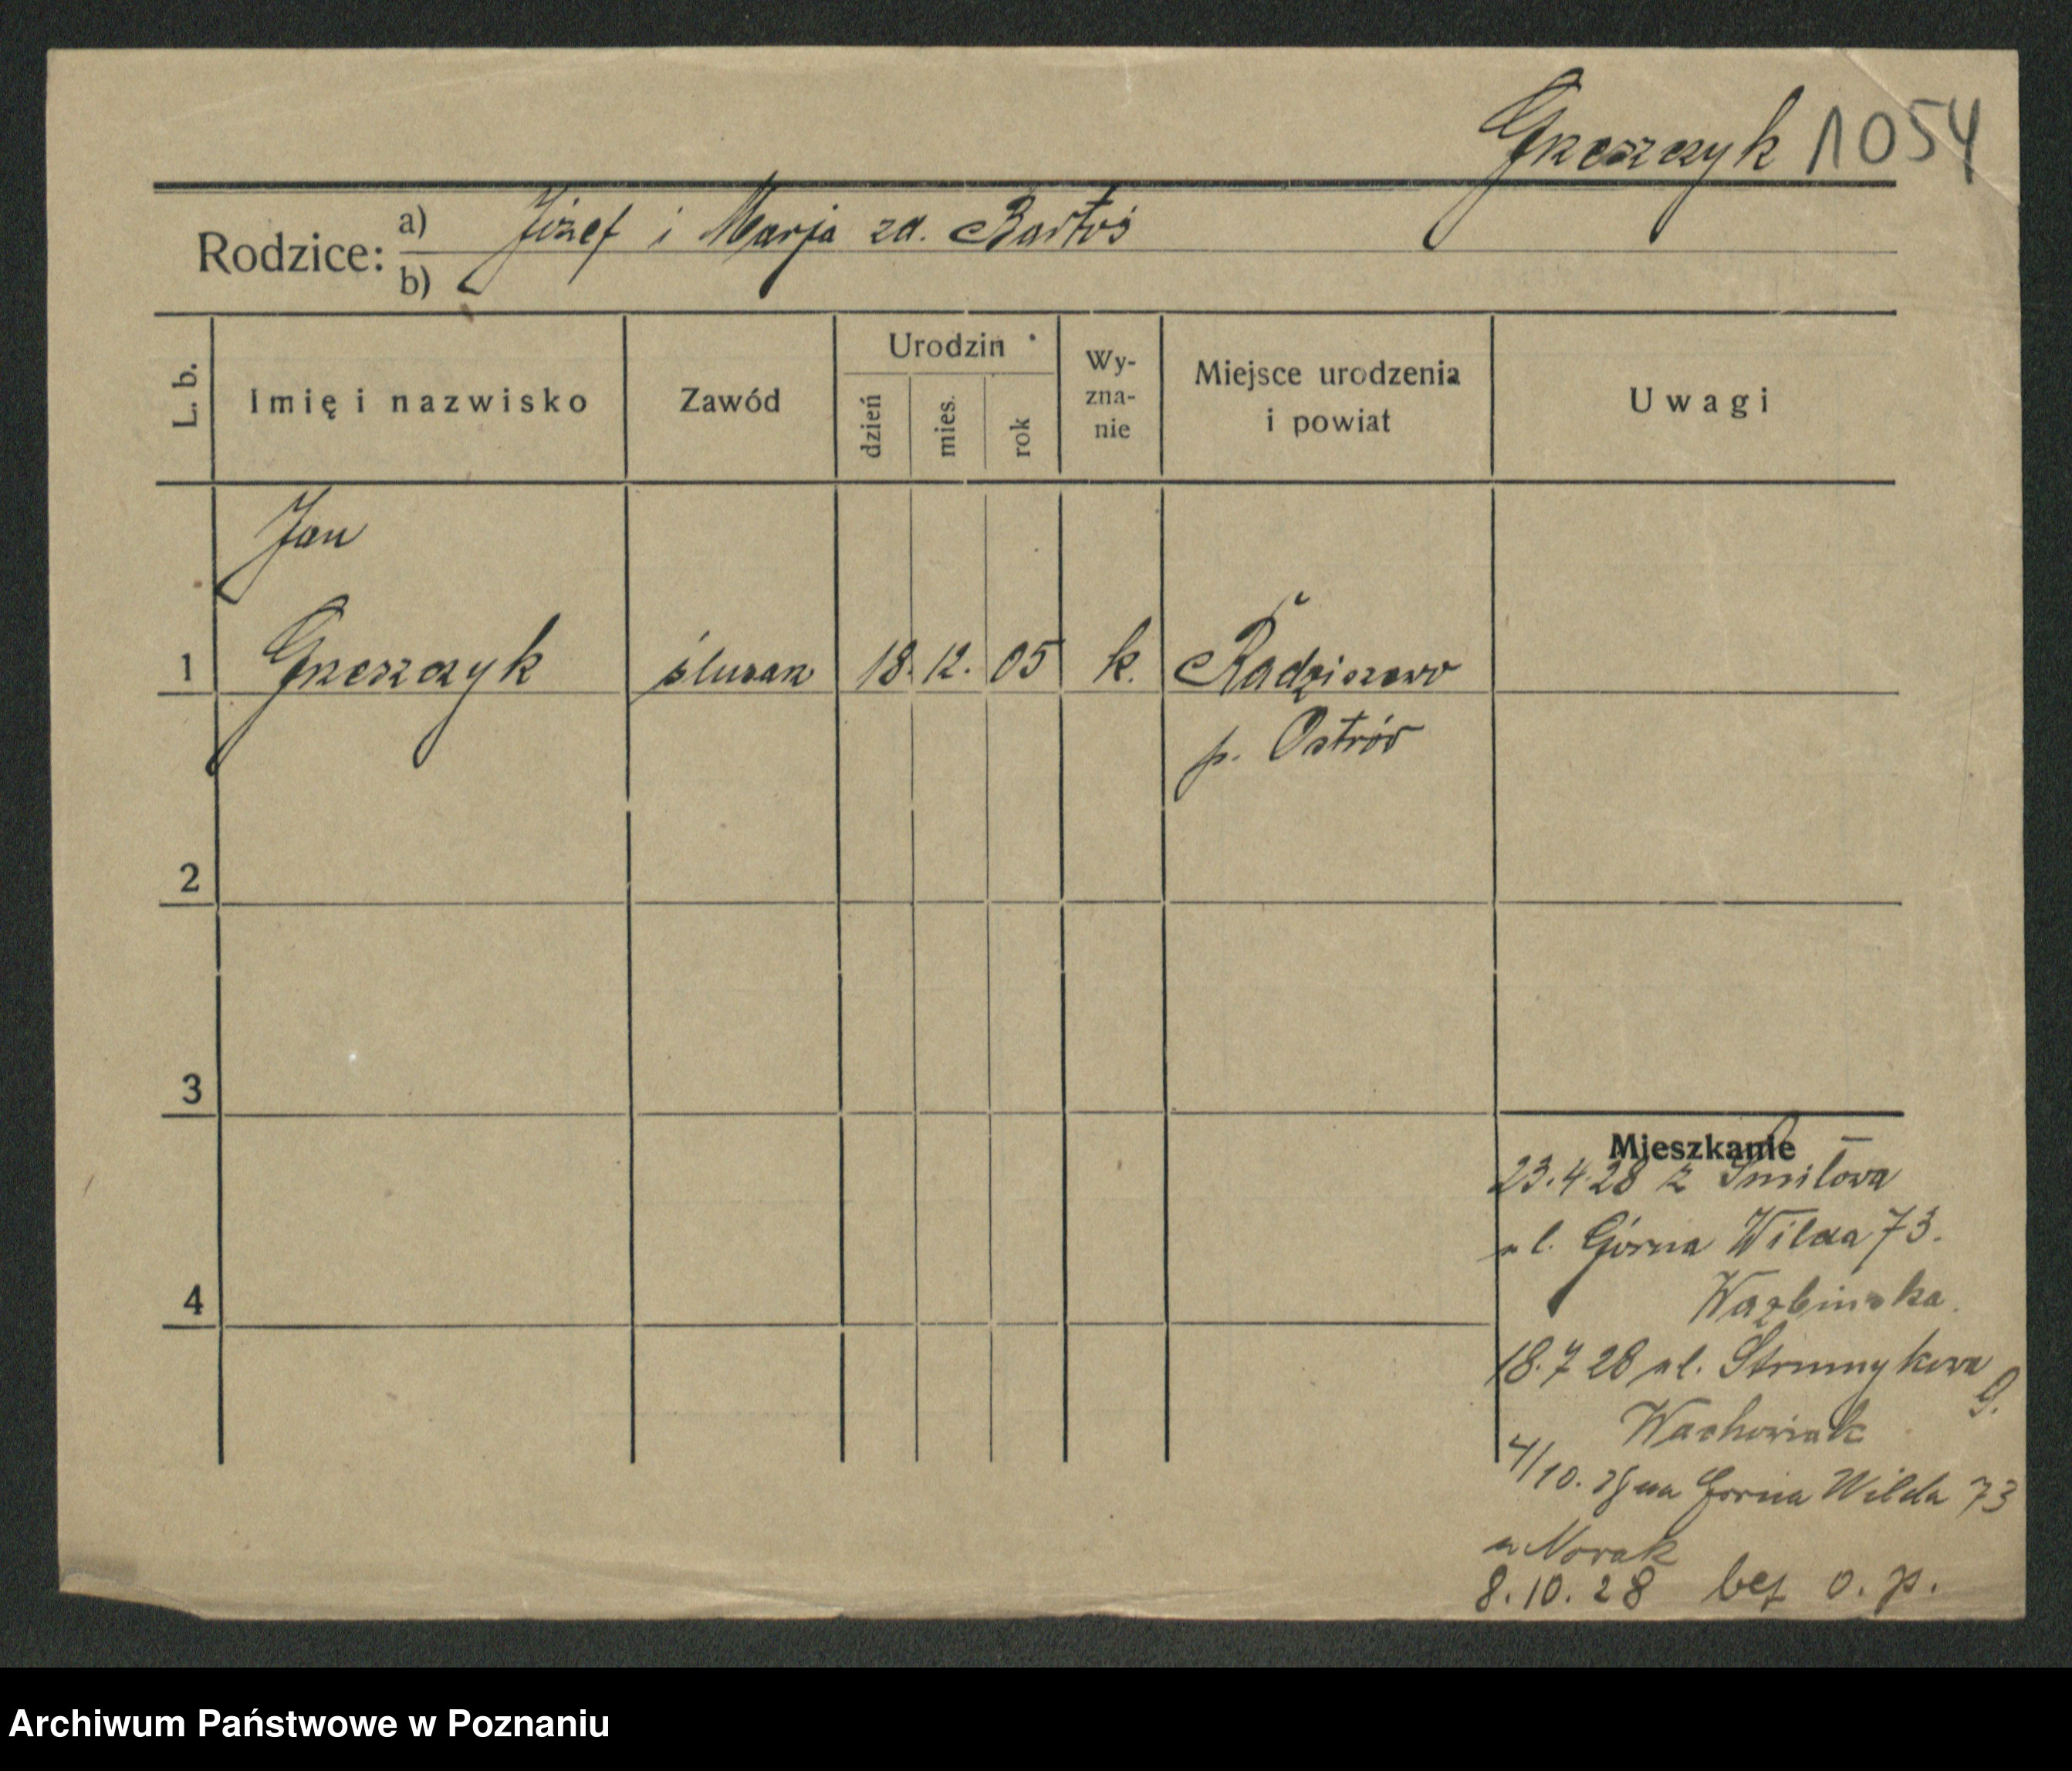 Grzeszczyk 1054
Rodzice: a) Józef i Marja zd. Bartoś
b)
L. b.
Imię i nazwisko
Zawód
Urodzin
dzień
mies.
rok
Wy-
zna-
nie
Miejsce urodzenia
i powiat
Uwagi
Jan
1 Grzeszczyk ślusarz 18. 12. 05 k. Radziszewo
p. Ostrów
2
3
4
Mieszkanie
23.4.28 z Śmiłowa
ul. Górna Wilda 73.
18.7 28 ul. Strumykowa
9.
Wachowiak
4/10. 28 na Gorna Wilda 73
u Nowak
8.10.28 bez o. p.
Archiwum Państwowe w Poznaniu